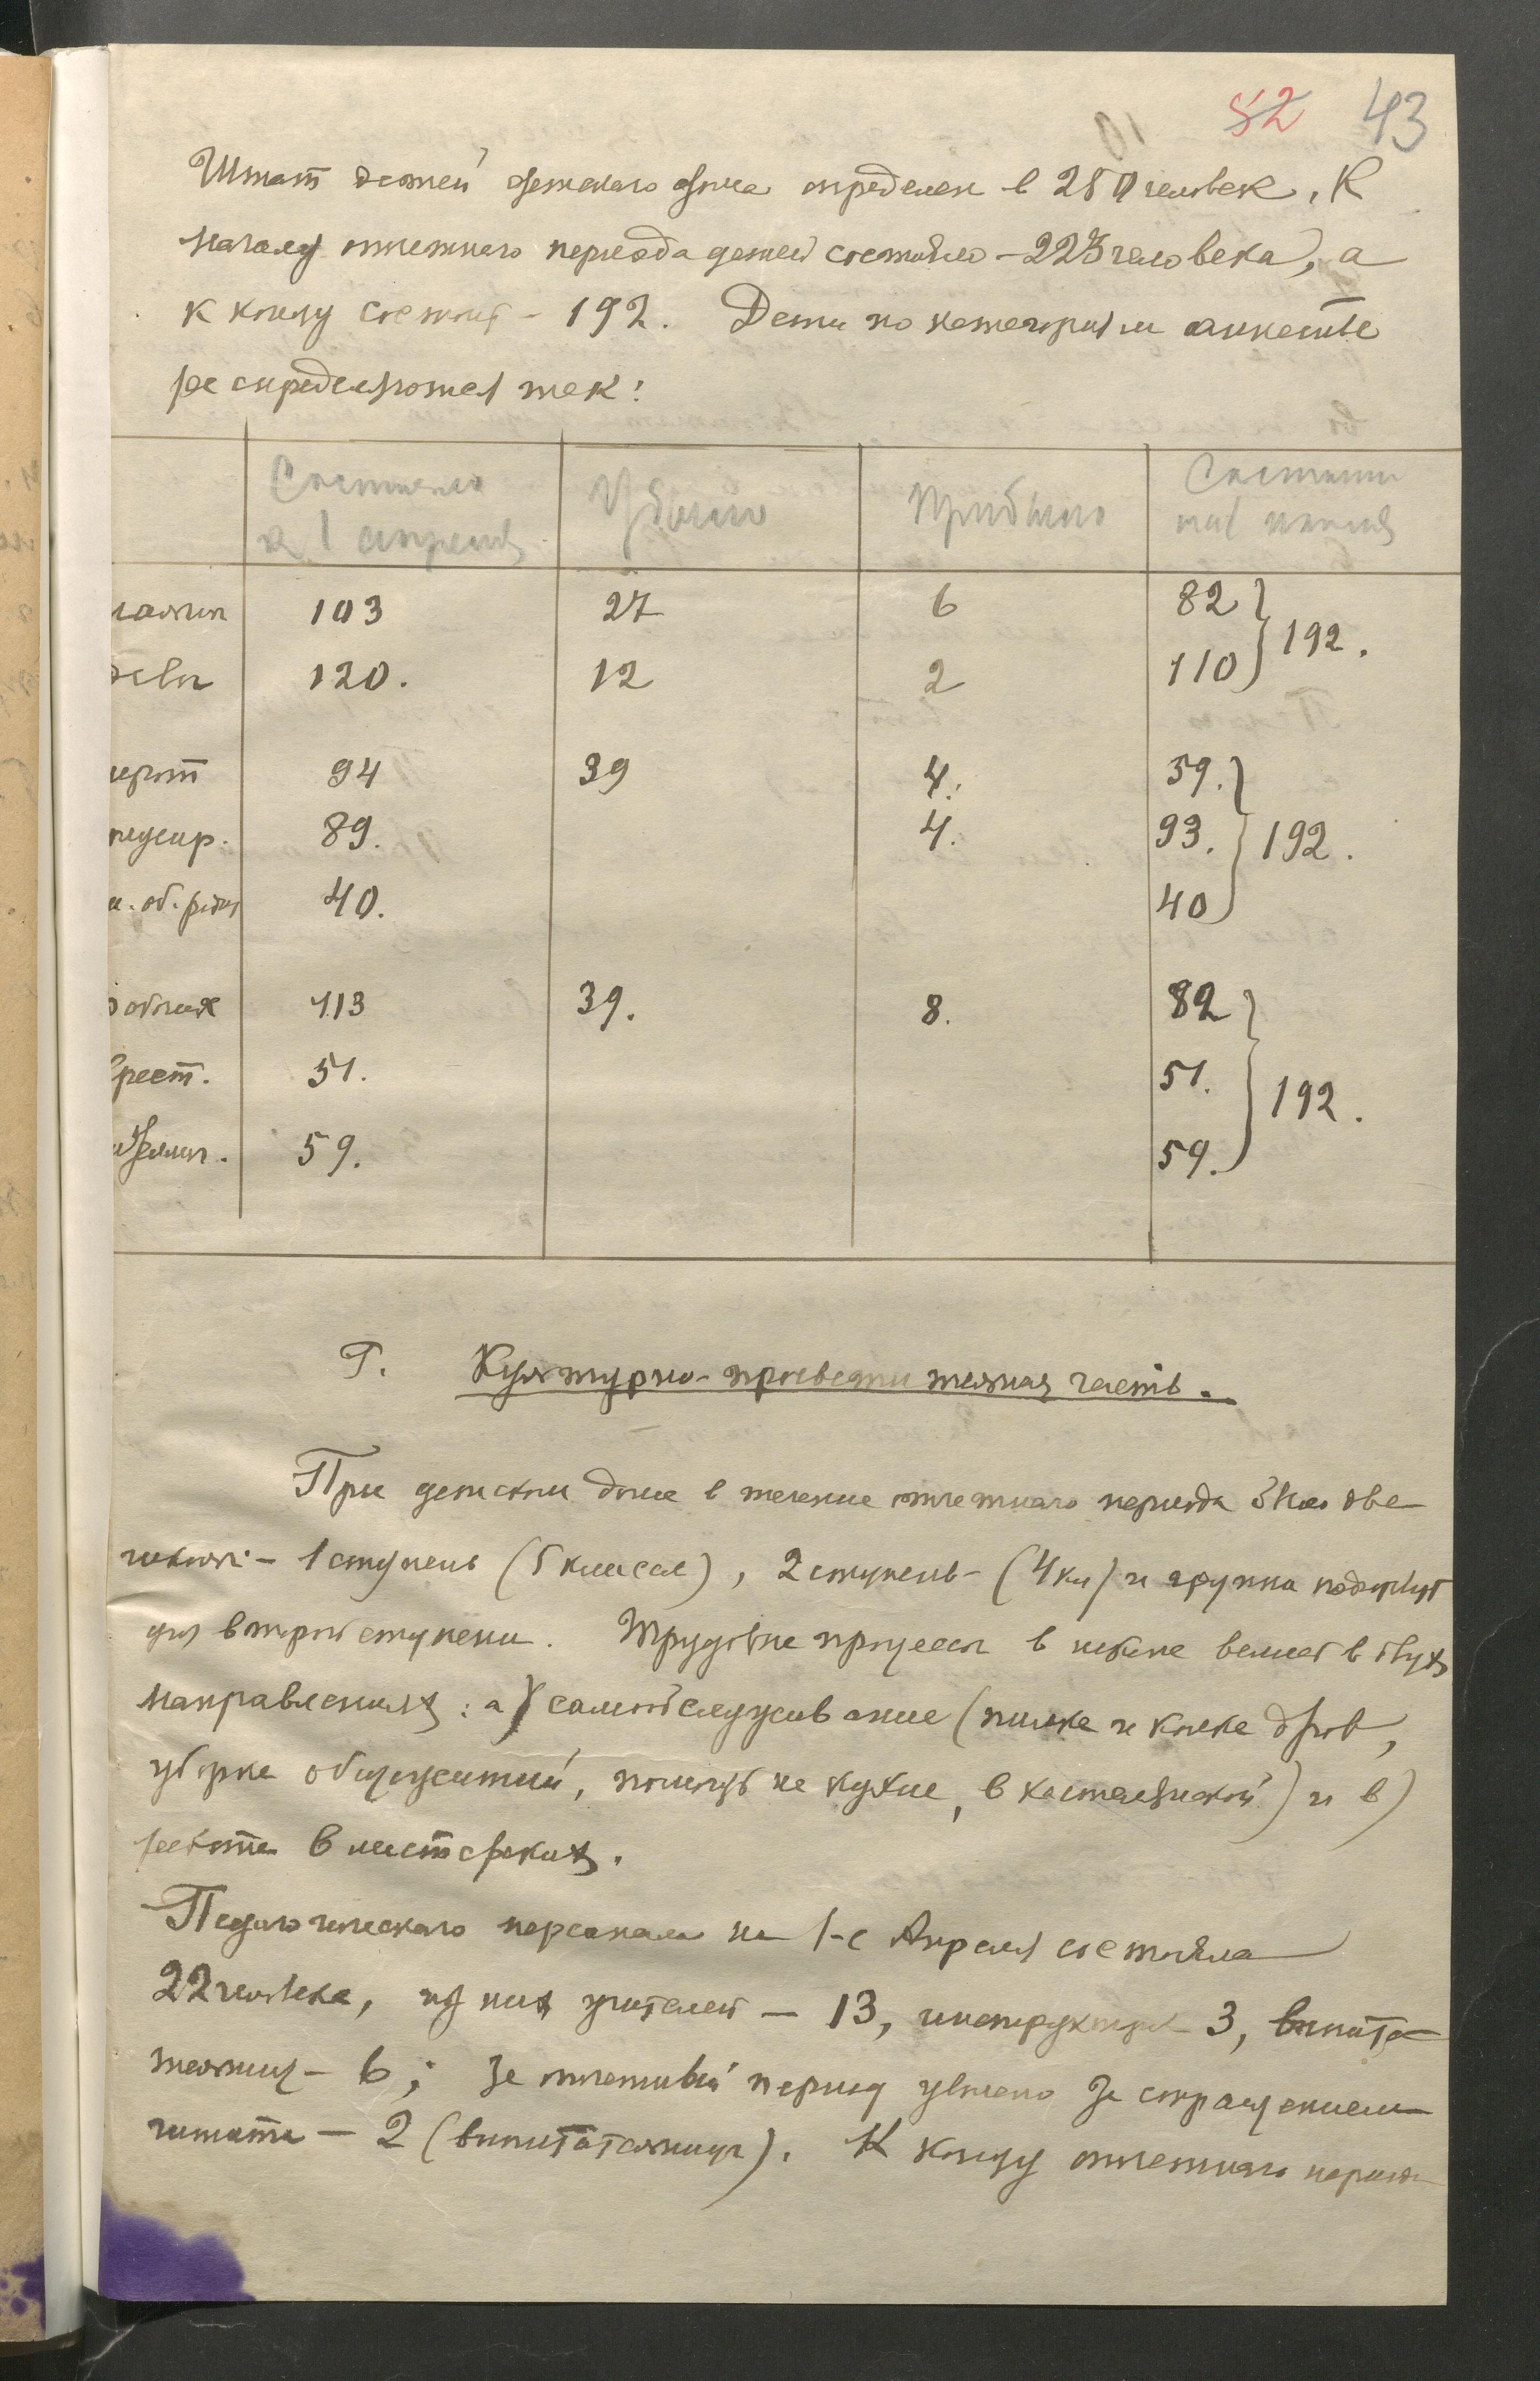 52 43
Штат детей детскаго дома определен в 250 человек. К
началу отчетнаго периода детей состояло – 223 человека, а
к концу состоит – 192. Дети по категориям анкеты
распределяются так:
Состояло Убыло Прибыло Состоит
к 1 апреля на 1 июля
103 27 6 82 } 192.
120. 12 2 110
94 39 4. 59.
89. 4. 93. } 192.
40. 40
113 39. 8. 82
крест. 51. 51. } 192.
59. 59.
Г. Культурно-просветительная часть.
При детском доме в течение отчетнаго периода
школы – 1 ступень (5 классов), 2 ступень – (4 кл) и группа
для второй ступени. Трудовые процессы в школе велись в двух
направлениях: а) самообслуживание (пилка и колка дров,
уборка общежитий, помощь на кухне, в кастелянской) и в)
работа в мастерских.
Педагогическаго персонала на 1-е Апреля состояло
22 человека, из них учителей – 13, инструкторов 3, воспита
тельниц – 6; за отчетный период уволено за сокращением
штата – 2 (воспитательницы). К концу отчетнаго периода